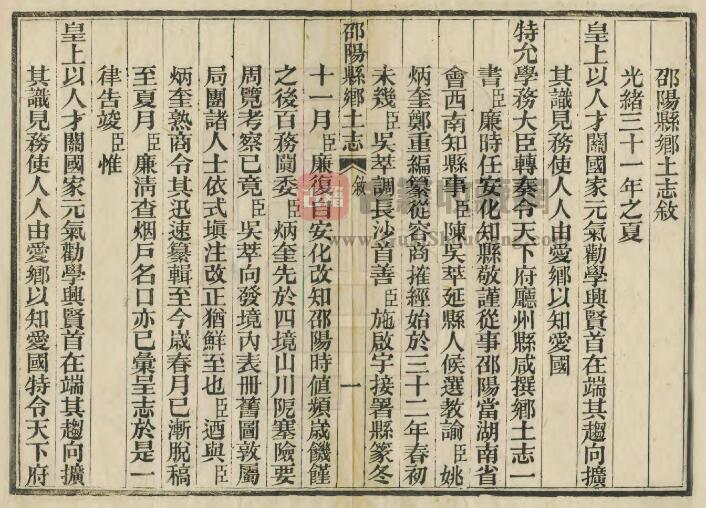 邵陽縣鄉土志敘
光緒三十一年之夏
皇上以人才關國家元氣勸學興賢首在端其趨向擴
其識見務使人人由愛鄉以知愛國
特允學務大臣轉奏令天下府廳州縣咸撰鄉土志一
書臣廉時任安化知縣敬謹從事邵陽當湖南省
會西南知縣事臣陳吳萃延縣人候選教諭臣姚
炳奎鄭重編纂從容商搉經始於三十二年春初
未幾臣吳萃調長沙首善臣施啟宇接署縣篆冬
邵陽縣鄉土志 敘 一
十一月臣廉復自安化改知邵陽時值頻歲饑饉
之後百務鬩委臣炳奎先於四境山川阨塞險要
周覽考察已竟臣吳萃向發境內表冊舊圖敦屬
局團諸人士依式塡注改正猶鮮至也臣迺與臣
炳奎熟商令其迅速纂輯至今歲春月已漸脫稿
至夏月臣廉淸查烟戶名口亦已彙呈志於是一
律告竣臣惟
皇上以人才關國家元氣勸學興賢首在端其趨向擴
其識見務使人人由愛鄉以知愛國特令天下府